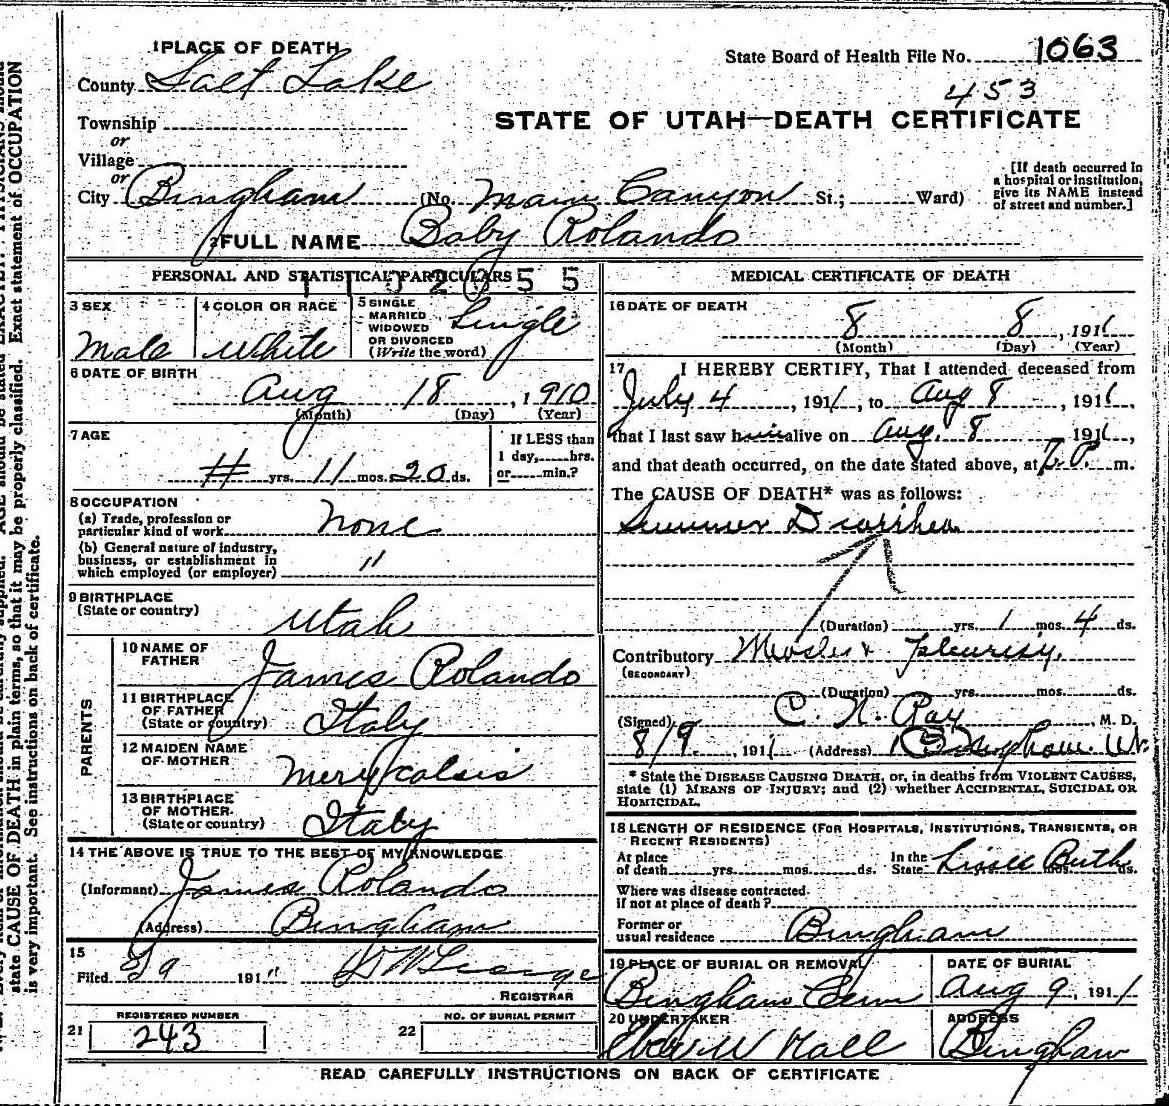 1 PLACE OF DEATH
State Board of Health File No. 1063
County Salt Lake
453
STATE OF UTAH—DEATH CERTIFICATE
Township
or
Village
or
City Bingham (No. Main Canyon St.; Ward)
[If death occurred in
a hospital or institution,
give its NAME instead
of street and number.]
2 FULL NAME Baby Rolando
PERSONAL AND STATISTICAL PARTICULARS
3 SEX
Male
4 COLOR OR RACE
White
5 SINGLE
MARRIED
WIDOWED
OR DIVORCED
(Write the word)
Single
6 DATE OF BIRTH
Aug 18, 1910
(Month) (Day) (Year)
7 AGE
yrs. 11 mos. 20 ds.
If LESS than
1 day, hrs.
or min.?
8 OCCUPATION
(a) Trade, profession or
particular kind of work None
(b) General nature of industry,
business, or establishment in
which employed (or employer) "
9 BIRTHPLACE
(State or country) Utah
PARENTS
10 NAME OF
FATHER James Rolando
11 BIRTHPLACE
OF FATHER
(State or country) Italy
12 MAIDEN NAME
OF MOTHER
13 BIRTHPLACE
OF MOTHER
(State or country) Italy
14 THE ABOVE IS TRUE TO THE BEST OF MY KNOWLEDGE
(Informant) James Rolando
(Address) Bingham
15
Filed 8/9 191
REGISTRAR
21 REGISTERED NUMBER
243
22 NO. OF BURIAL PERMIT
MEDICAL CERTIFICATE OF DEATH
16 DATE OF DEATH
8 8, 1911
(Month) (Day) (Year)
17 I HEREBY CERTIFY, That I attended deceased from
July 4, 1911, to Aug 8, 1911,
that I last saw him alive on Aug. 8 1911,
and that death occurred, on the date stated above, at P. m.
The CAUSE OF DEATH* was as follows:
Summer Diarrhea
(Duration) yrs. 1 mos. 4 ds.
Contributory Measles & Pleurisy.
(SECONDARY)
(Duration) yrs. mos. ds.
(Signed) C. N. Ray M. D.
8/9, 1911 (Address) Bingham Ut.
* State the DISEASE CAUSING DEATH, or, in deaths from VIOLENT CAUSES,
state (1) MEANS OF INJURY; and (2) whether ACCIDENTAL, SUICIDAL OR
HOMICIDAL.
18 LENGTH OF RESIDENCE (FOR HOSPITALS, INSTITUTIONS, TRANSIENTS, OR
RECENT RESIDENTS)
At place
of death yrs. mos. ds.
In the
State Since Birth
Where was disease contracted
if not at place of death?
Former or
usual residence Bingham
19 PLACE OF BURIAL OR REMOVAL
Bingham Cem
DATE OF BURIAL
Aug 9, 1911
20 UNDERTAKER
W Hall
ADDRESS
Bingham
READ CAREFULLY INSTRUCTIONS ON BACK OF CERTIFICATE
state CAUSE OF DEATH in plain terms, so that it may be properly classified. Exact statement of OCCUPATION
is very important. See instructions on back of certificate.